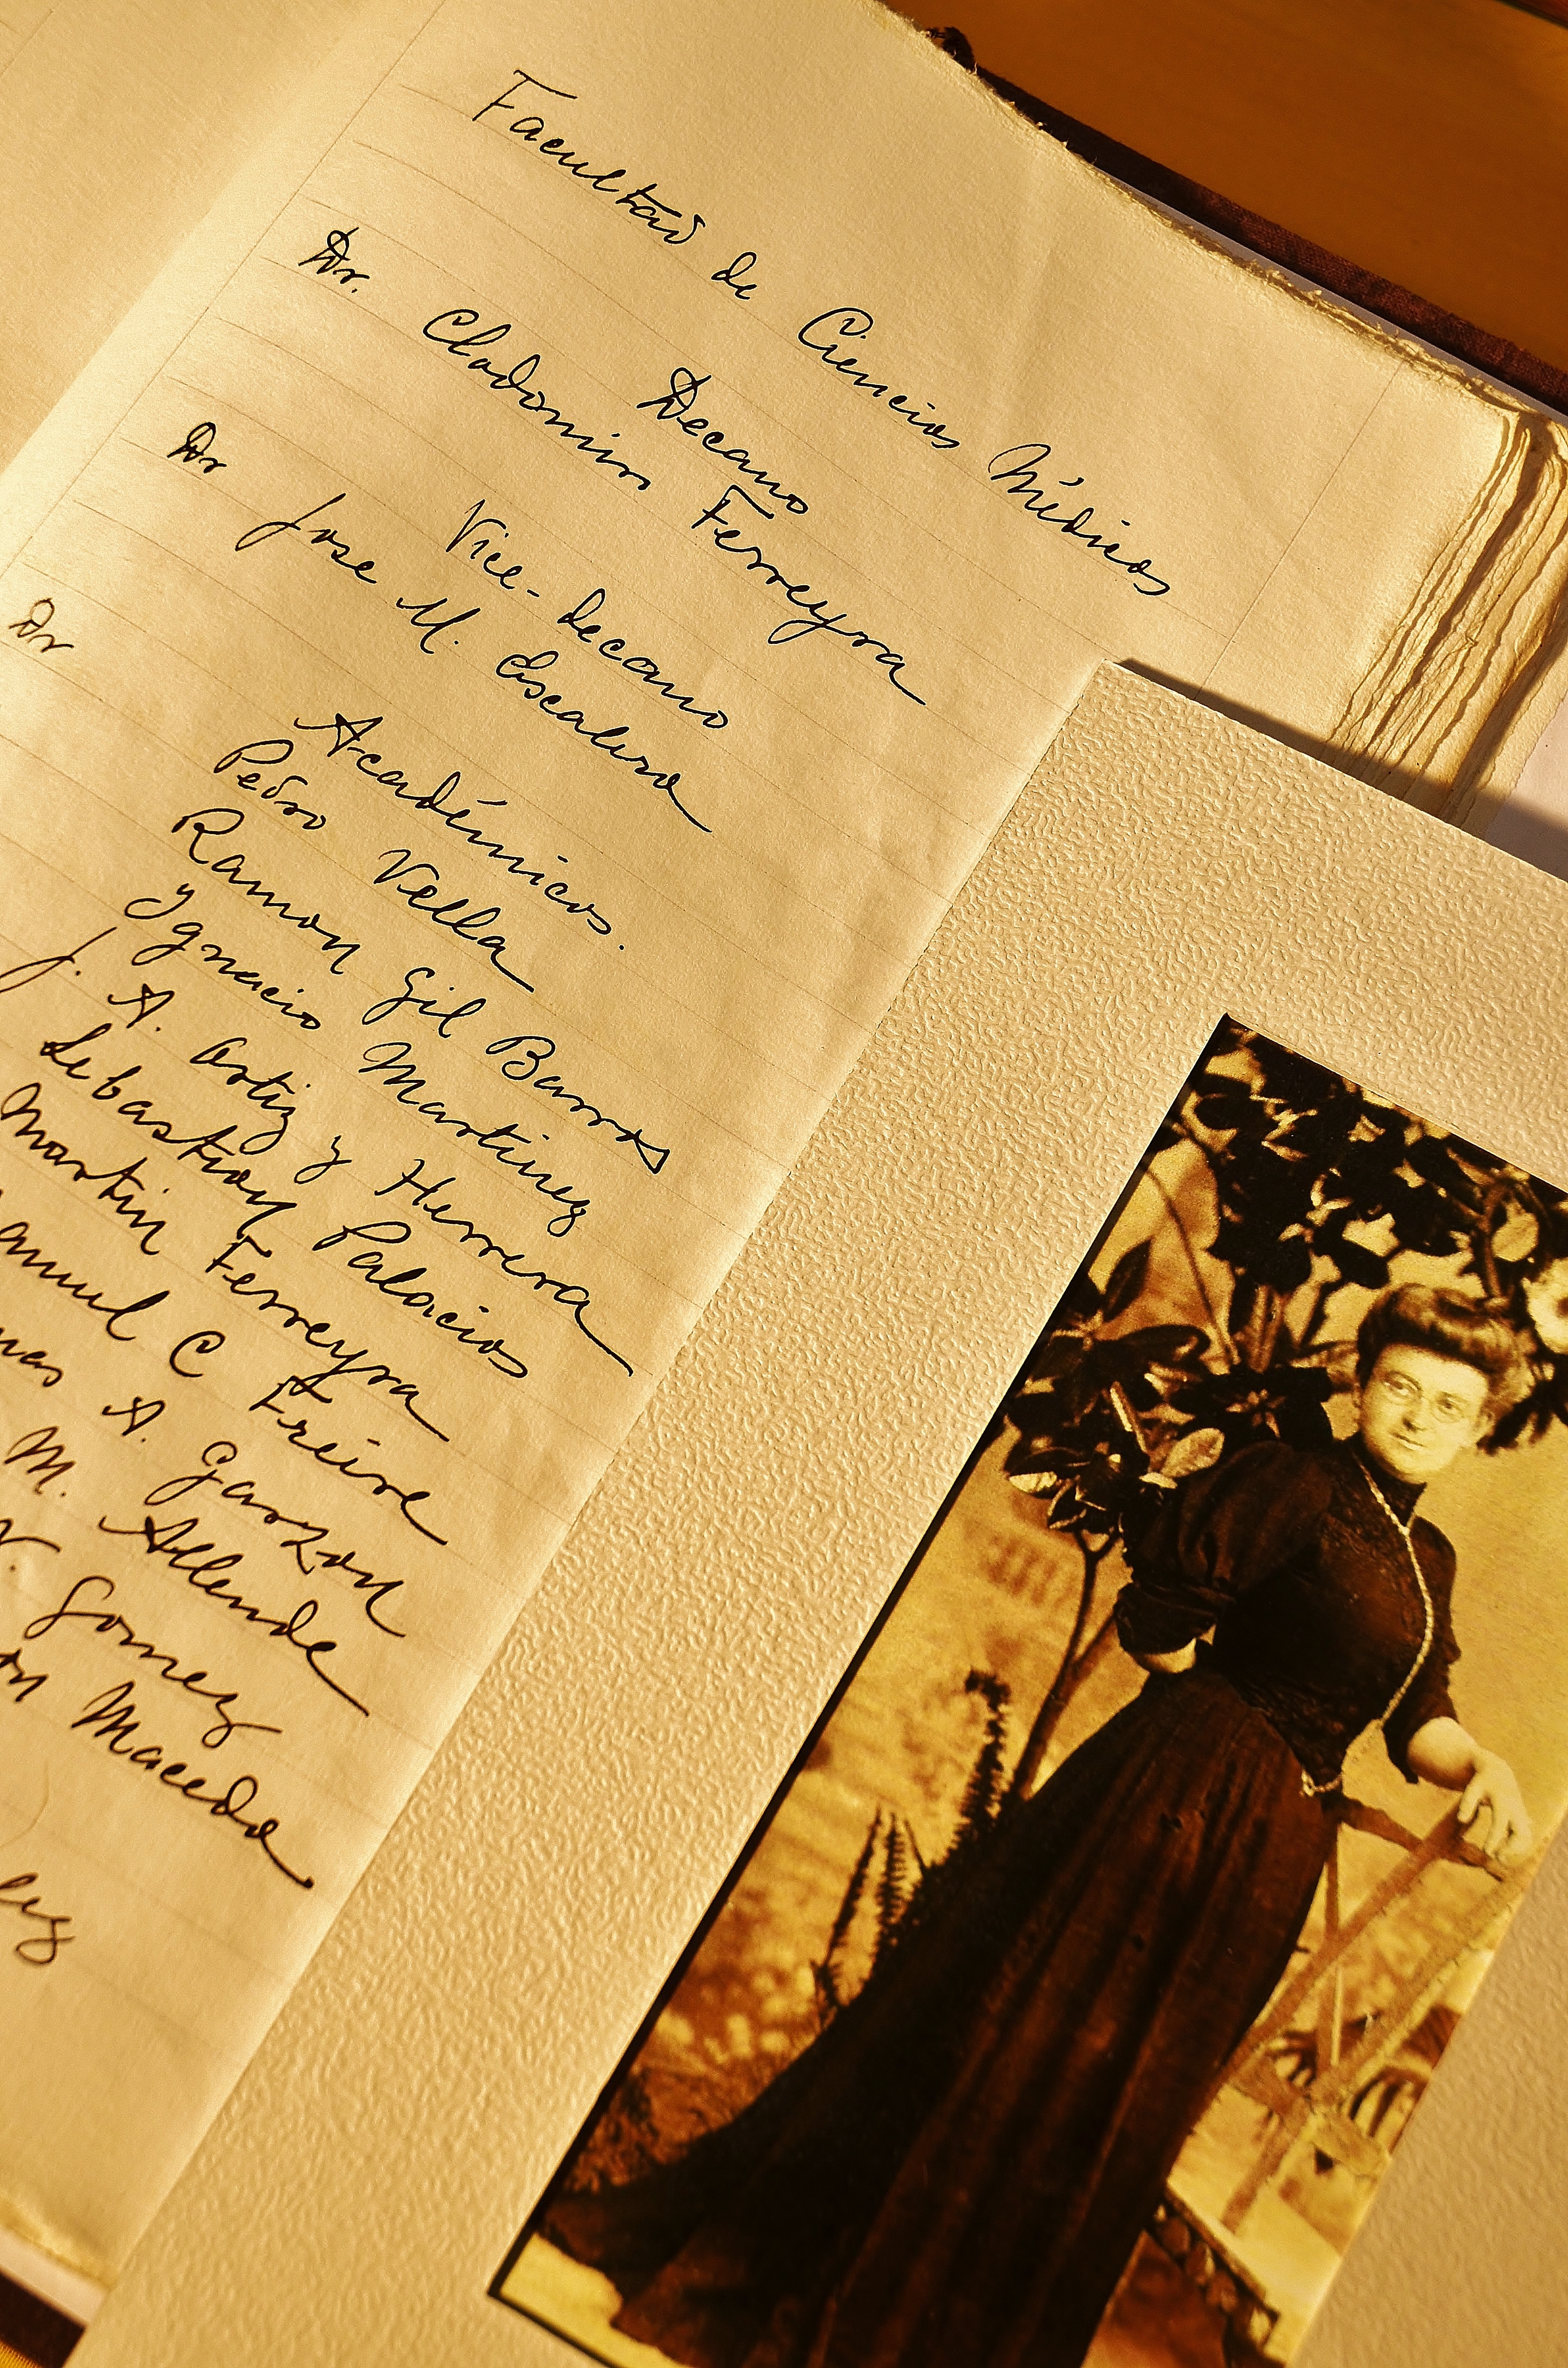 Facultad de Ciencias Médicas
Decano
Dr. Clodomiro Ferreyra
Vice-decano
Dr Jose M. Escalera
Dr
Académicos.
Pedro Vella
Ramon Gil Barros
Ygnacio Martinez
J. A. Ortiz y Herrera
Sebastian Palacios
Martin Ferreyra
C Freire
A. Garzon
M. Allende
Gomez
Macedo